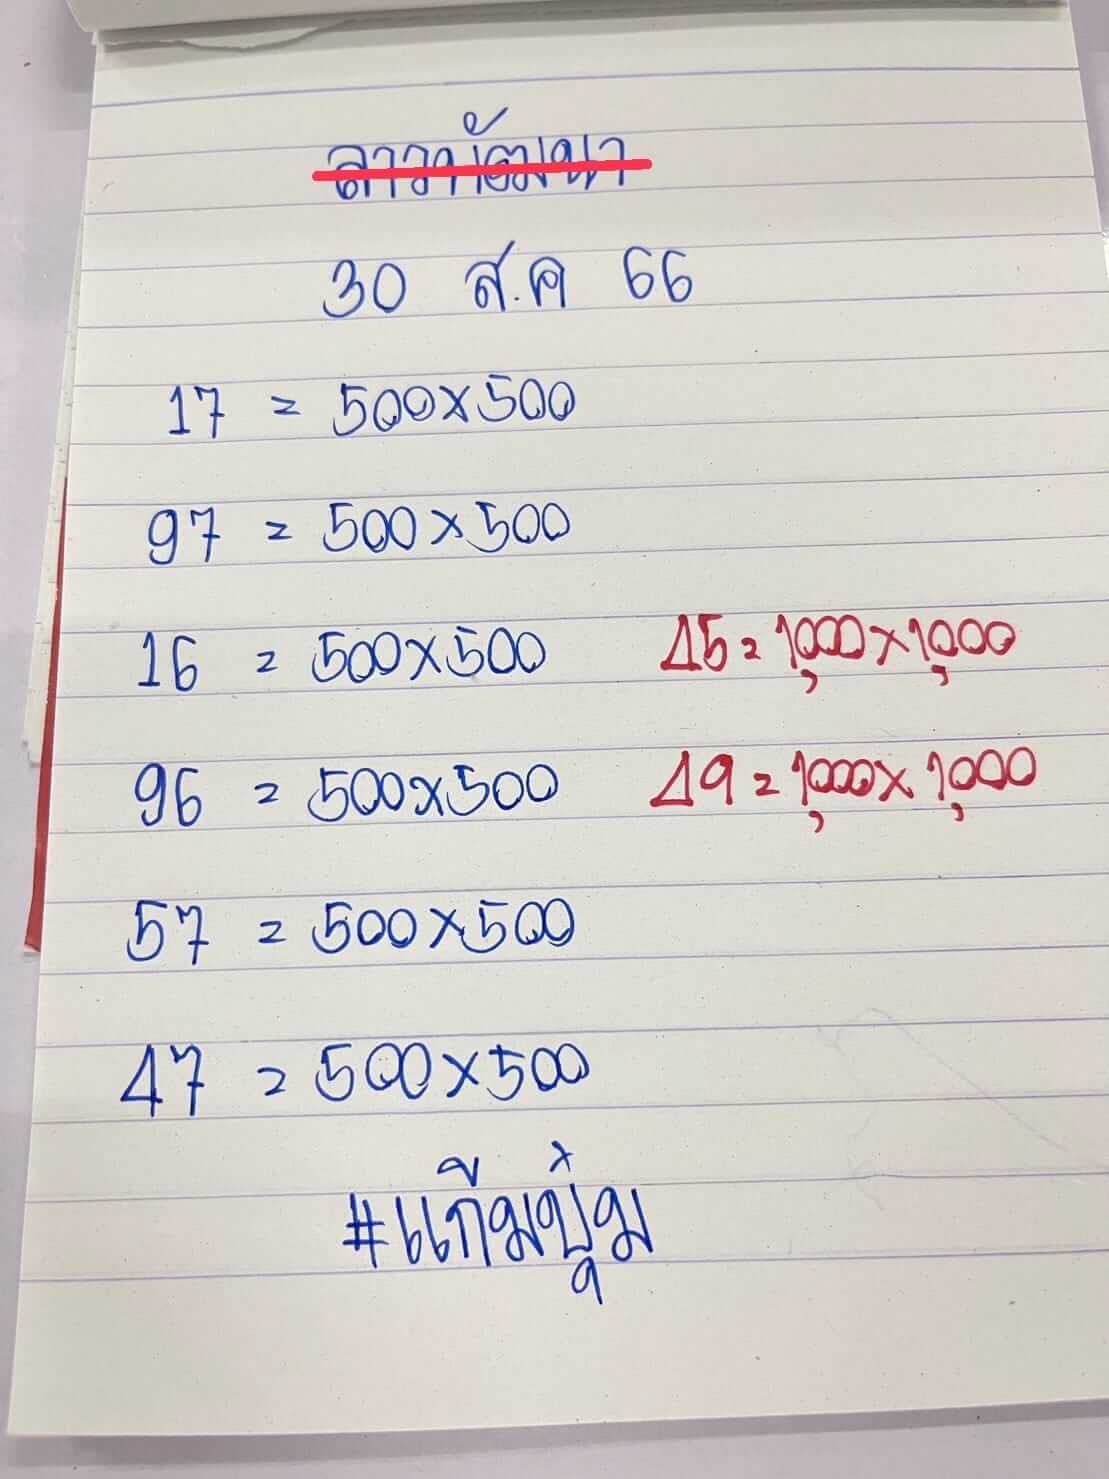 ลาวพัฒนา
30 ส.ค 66
17 = 500×500
97 = 500×500
16 = 500×500 45 = 1,000×1,000
96 = 500×500 49 = 1,000×1,000
57 = 500×500
47 = 500×500
#แก๊มบุ๋ม